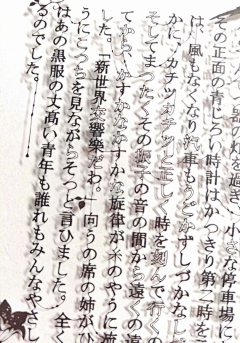 の灯を過ぎ、小さな停車場に
その正面の青じろい時計はかつきり第二時を
は、風もなくなり汽車もうごかずしづかなし
かに、カチッカチッと正しく時を刻んで行くの
そしてまつたくその振子の音の間から遠くの遠
てから、かすかなかすかな旋律が糸のやうに流
「新世界交響樂だわ。」向うの席の姉がひ
うにこつちを見ながらそつと言ひました。全く
はあの黒服の丈高い青年も誰れもみんなやさし
るのでした。